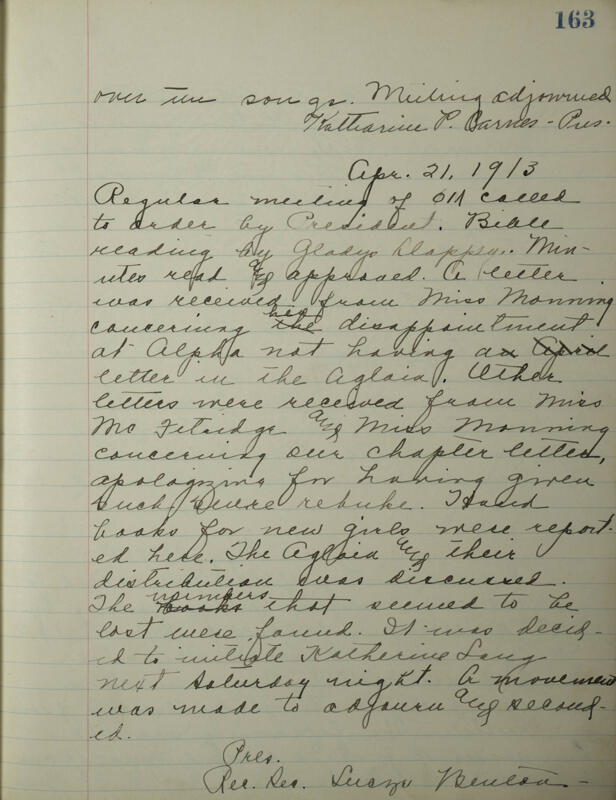 163
over the songs. Meeting adjourned
Katharine P. Barnes - Pres.
Apr. 21, 1913
Regular meeting of ΦM called
to order by President. Bible
reading by Gladys Clappy. Min-
utes read and approved. A letter
was received from Miss Manning
concerning the her disappointment
at Alpha not having an April
letter in the Aglaia. Other
letters were received from Miss
Mc Fetridge and Miss Manning
concerning our chapter letter,
apologizing for having given
such severe rebuke. Hand
books for new girls were report-
ed here. The Aglaia and their
distribution was discussed.
The books numbers that seemed to be
lost were found. It was decid-
ed to initiate Katherine Lang
next Saturday night. A movement
was made to adjourn and second-
ed.
Pres.
Rec. Sec. Benton -